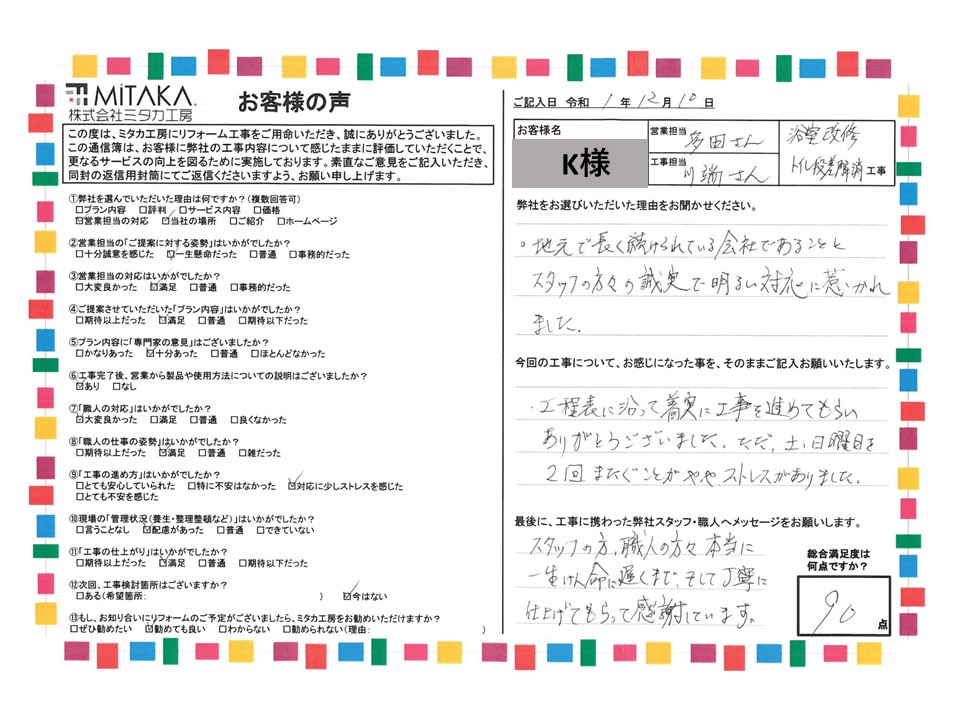 MiTAKA.
株式会社ミタカ工房
お客様の声
この度は、ミタカ工房にリフォーム工事をご用命いただき、誠にありがとうございました。
この通信簿は、お客様に弊社の工事内容について感じたままに評価していただくことで、
更なるサービスの向上を図るために実施しております。素直なご意見をご記入いただき、
同封の返信用封筒にてご返信くださいますよう、お願い申し上げます。
①弊社を選んでいただいた理由は何ですか?(複数回答可)
□プラン内容 □評判 □サービス内容 □価格
☑営業担当の対応 ☑当社の場所 □ご紹介 □ホームページ
②営業担当の「ご提案に対する姿勢」はいかがでしたか?
□十分誠意を感じた ☑一生懸命だった □普通 □事務的だった
③営業担当の対応はいかがでしたか?
□大変良かった ☑満足 □普通 □事務的だった
④ご提案させていただいた「プラン内容」はいかがでしたか?
□期待以上だった ☑満足 □普通 □期待以下だった
⑤プラン内容に「専門家の意見」はございましたか?
□かなりあった ☑十分あった □普通 □ほとんどなかった
⑥工事完了後、営業から製品や使用方法についての説明はございましたか?
☑あり □なし
⑦「職人の対応」はいかがでしたか?
☑大変良かった □満足 □普通 □良くなかった
⑧「職人の仕事の姿勢」はいかがでしたか?
□期待以上だった ☑満足 □普通 □雑だった
⑨「工事の進め方」はいかがでしたか?
□とても安心していられた □特に不安はなかった ☑対応に少しストレスを感じた
□とても不安を感じた
⑩現場の「管理状況(養生・整理整頓など)」はいかがでしたか?
□言うことなし ☑配慮があった □普通 □できていない
⑪「工事の仕上がり」はいかがでしたか?
□期待以上だった ☑満足 □普通 □期待以下だった
⑫次回、工事検討箇所はございますか?
□ある(希望箇所: ) ☑今はない
⑬もし、お知り合いにリフォームのご予定がございましたら、ミタカ工房をお勧めいただけますか?
□ぜひ勧めたい ☑勧めても良い □わからない □勧められない(理由: )
ご記入日 令和 1 年 12 月 10 日
お客様名
K様
営業担当 多田さん
工事担当 川端さん
浴室改修
トイレ段差解消 工事
弊社をお選びいただいた理由をお聞かせください。
。地元で長く続けられている会社であることと
スタッフの方々の誠実で明るい対応に惹かれ
ました。
今回の工事について、お感じになった事を、そのままご記入お願いいたします。
・工程表に沿って着実に工事を進めてもらい
ありがとうございました。ただ、土、日曜日を
2回またぐことがややストレスがありました。
最後に、工事に携わった弊社スタッフ・職人へメッセージをお願いします。
スタッフの方、職人の方々本当に
一生けん命に遅くまで、そして丁寧に
仕上げてもらって感謝しています。
総合満足度は
何点ですか?
90 点